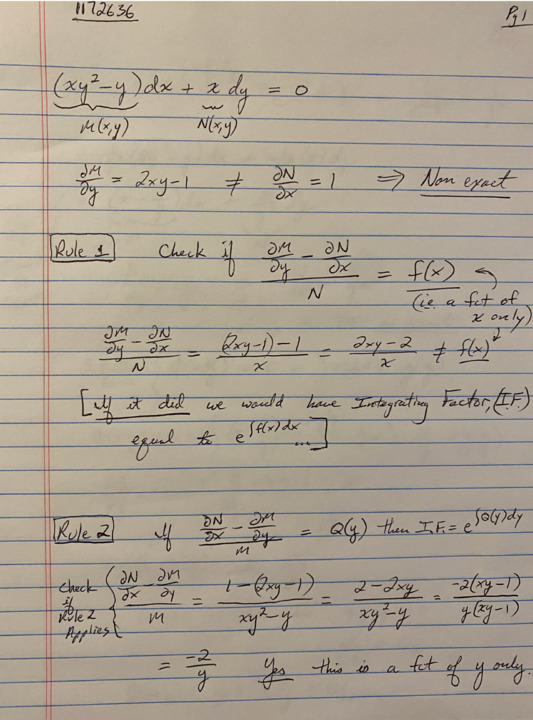 1172636 Pg 1
(xy²-y)dx + x dy = 0
M(x,y) N(x,y)
∂M/∂y = 2xy-1 ≠ ∂N/∂x = 1 ⇒ Non exact
Rule 1 Check if (∂M/∂y - ∂N/∂x)/N = f(x)
(ie a fct of
x only)
(∂M/∂y - ∂N/∂x)/N = ((2xy-1)-1)/x = (2xy-2)/x ≠ f(x)
[If it did we would have Integrating Factor, (I.F.)
equal to e^∫f(x)dx ...]
Rule 2 If (∂N/∂x - ∂M/∂y)/M = Q(y) then I.F. = e^∫Q(y)dy
Check if Rule 2 Applies { (∂N/∂x - ∂M/∂y)/M = (1-(2xy-1))/(xy²-y) = (2-2xy)/(xy²-y) = (-2(xy-1))/(y(xy-1))
= -2/y Yes this is a fct of y only.